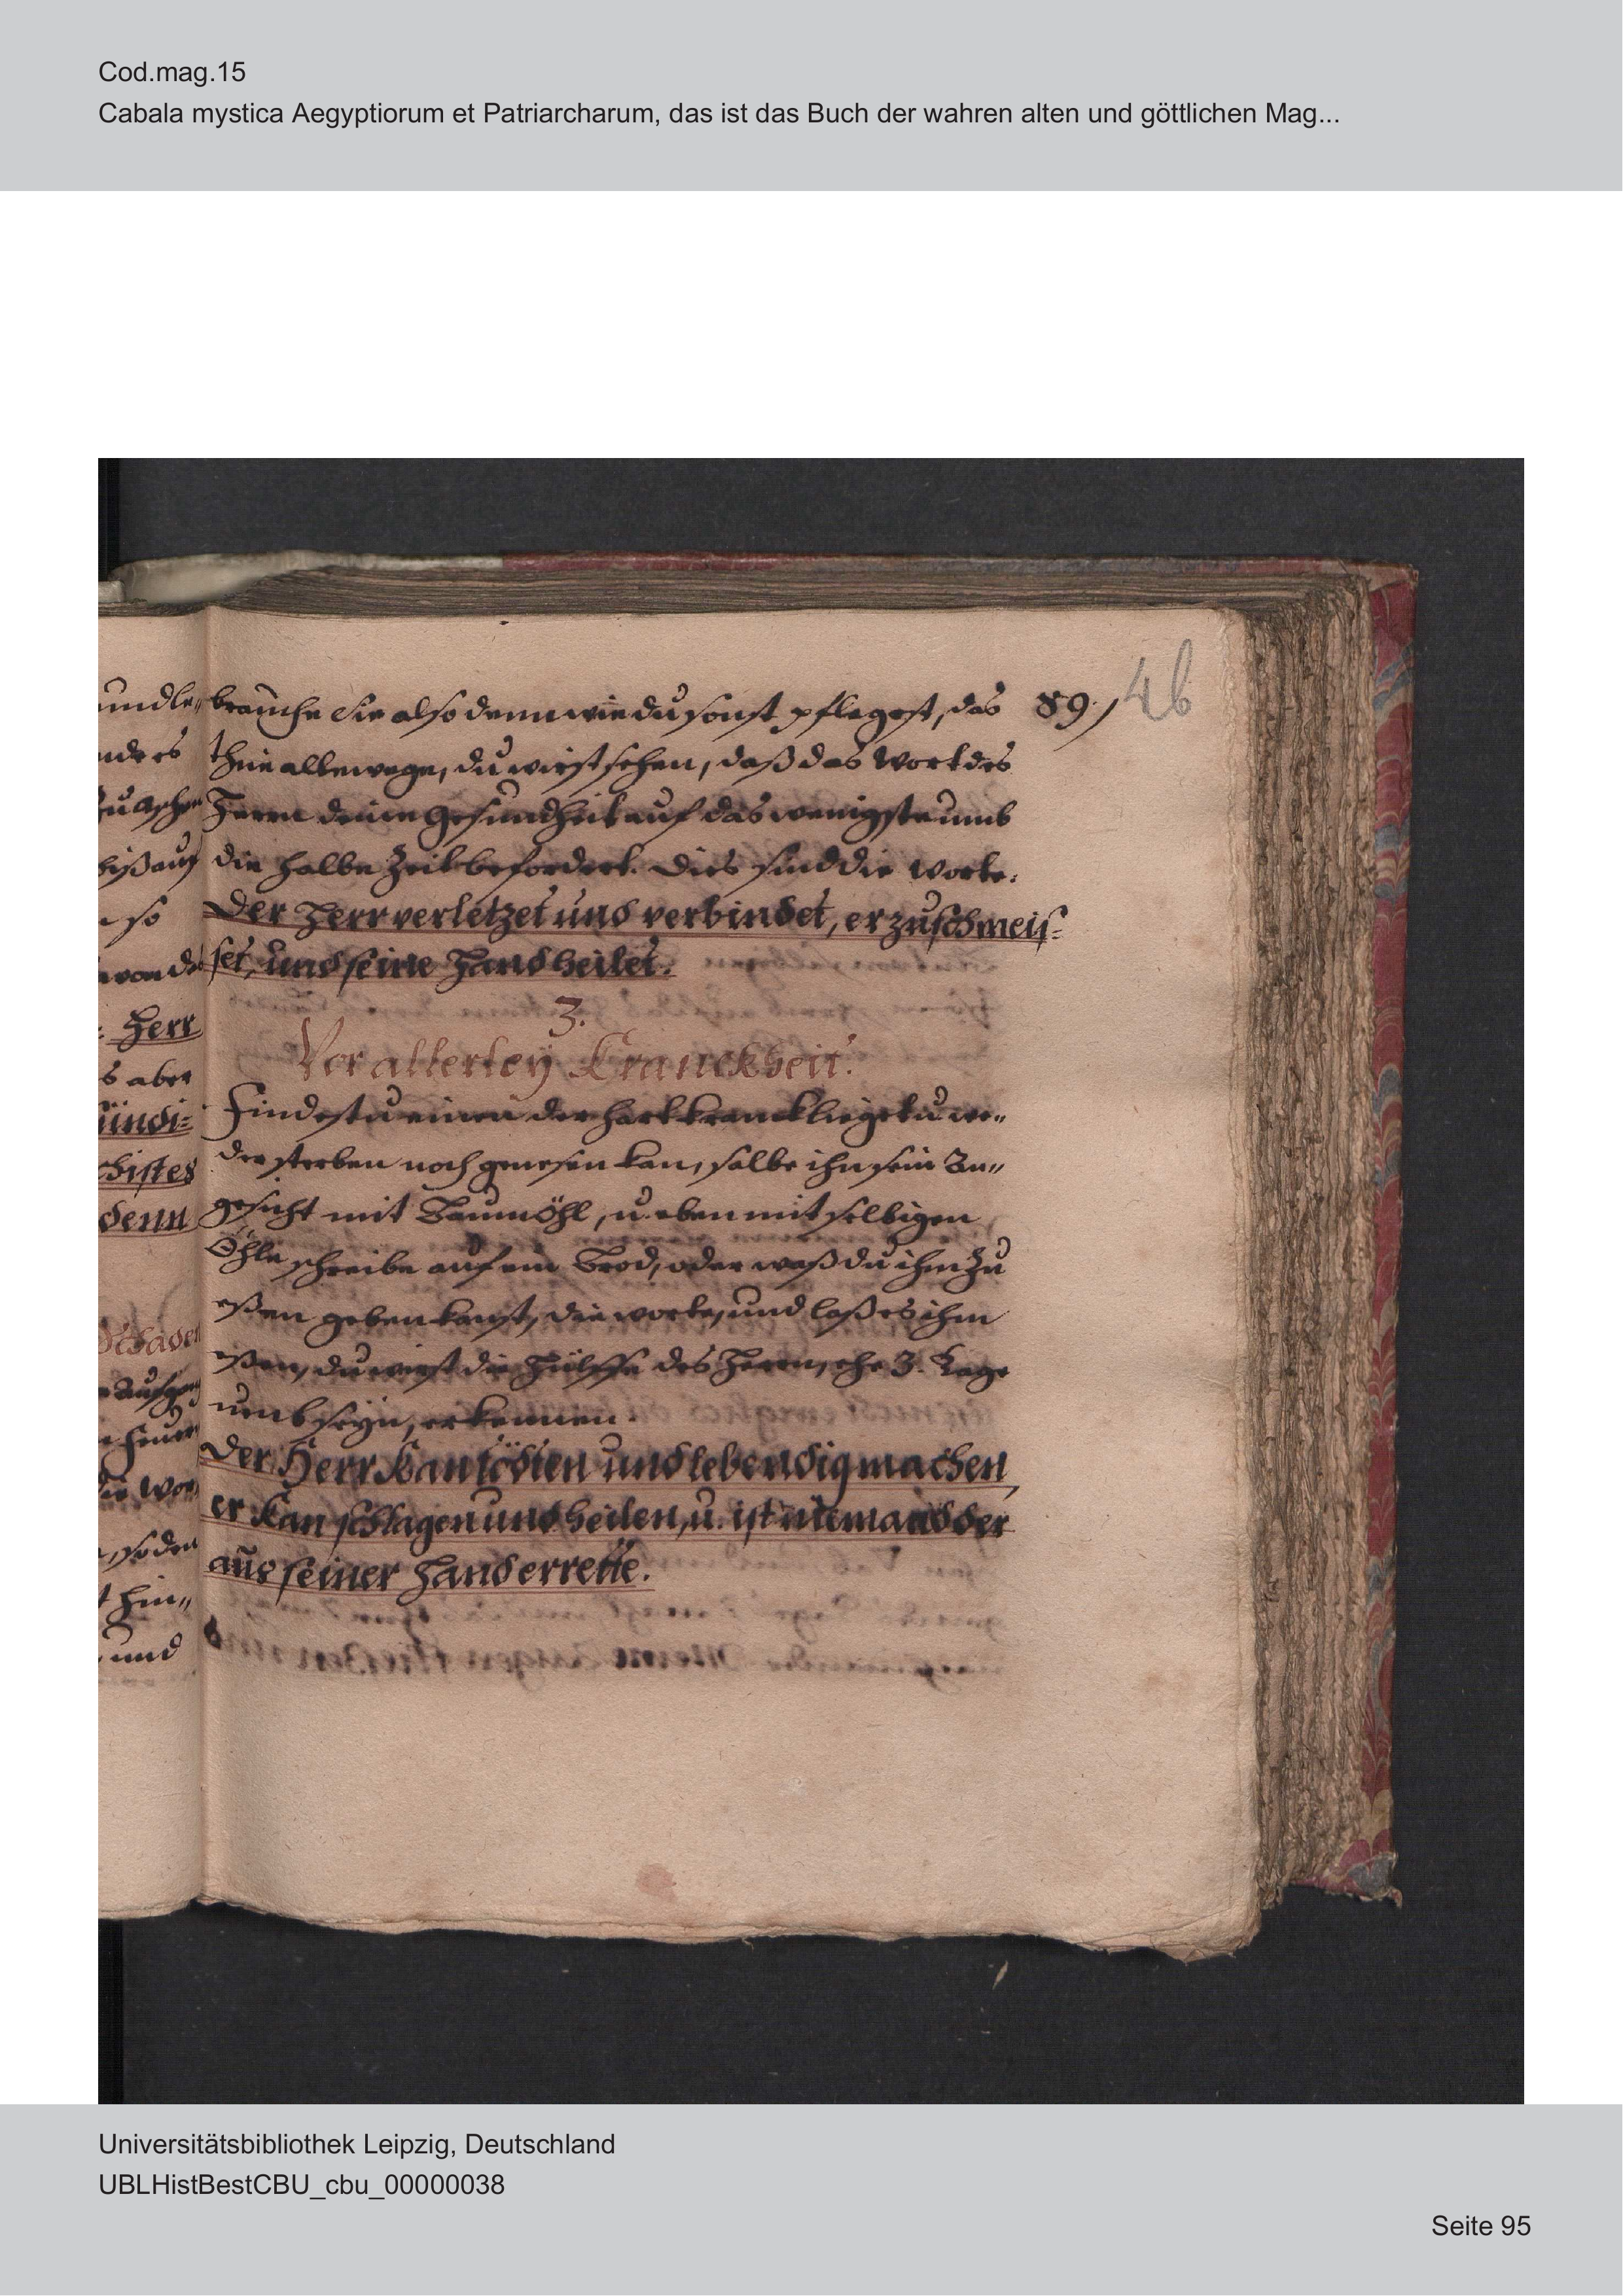 Cod.mag.15
Cabala mystica Aegyptiorum et Patriarcharum, das ist das Buch der wahren alten und göttlichen Mag...
46
brauche sie alsodenn wie du sonst pflegest, das 89.
thue allewege, du wirst sehen, daß das Wort des
Herrn deine Gesundheit auf das wenigste umb
die halbe Zeit befordert. Dies sind die Worte.
Der Herr verletzet und verbindet, er zuschmeis-
set, und seine Hand heilet.
3.
Vor allerley Kranckheit.
Findestu einen der hart kranck lieget u. we-
der sterben noch genesen kan, salbe ihn sein An-
gesicht mit Baumöhl, u. eben mit selbigen
Öhle schreibe auf ein Brod, oder waß du ihm zu
eßen geben kanst, die worte, und laß es ihm
eßen, du wirst die Hülffe des Herrn, ehe 3. Tage
umb seyn, erkennen.
Der Herr kan tödten und lebendig machen,
er kan schlagen und heilen, u. ist niemand der
aus seiner Hand errette.
und le-
nders
bißauf
so
von d
Herr
s aber
ündi-
denn
Schaden
Feuer
die Wor
, so den
t hin-
und
Universitätsbibliothek Leipzig, Deutschland
UBLHistBestCBU_cbu_00000038
Seite 95